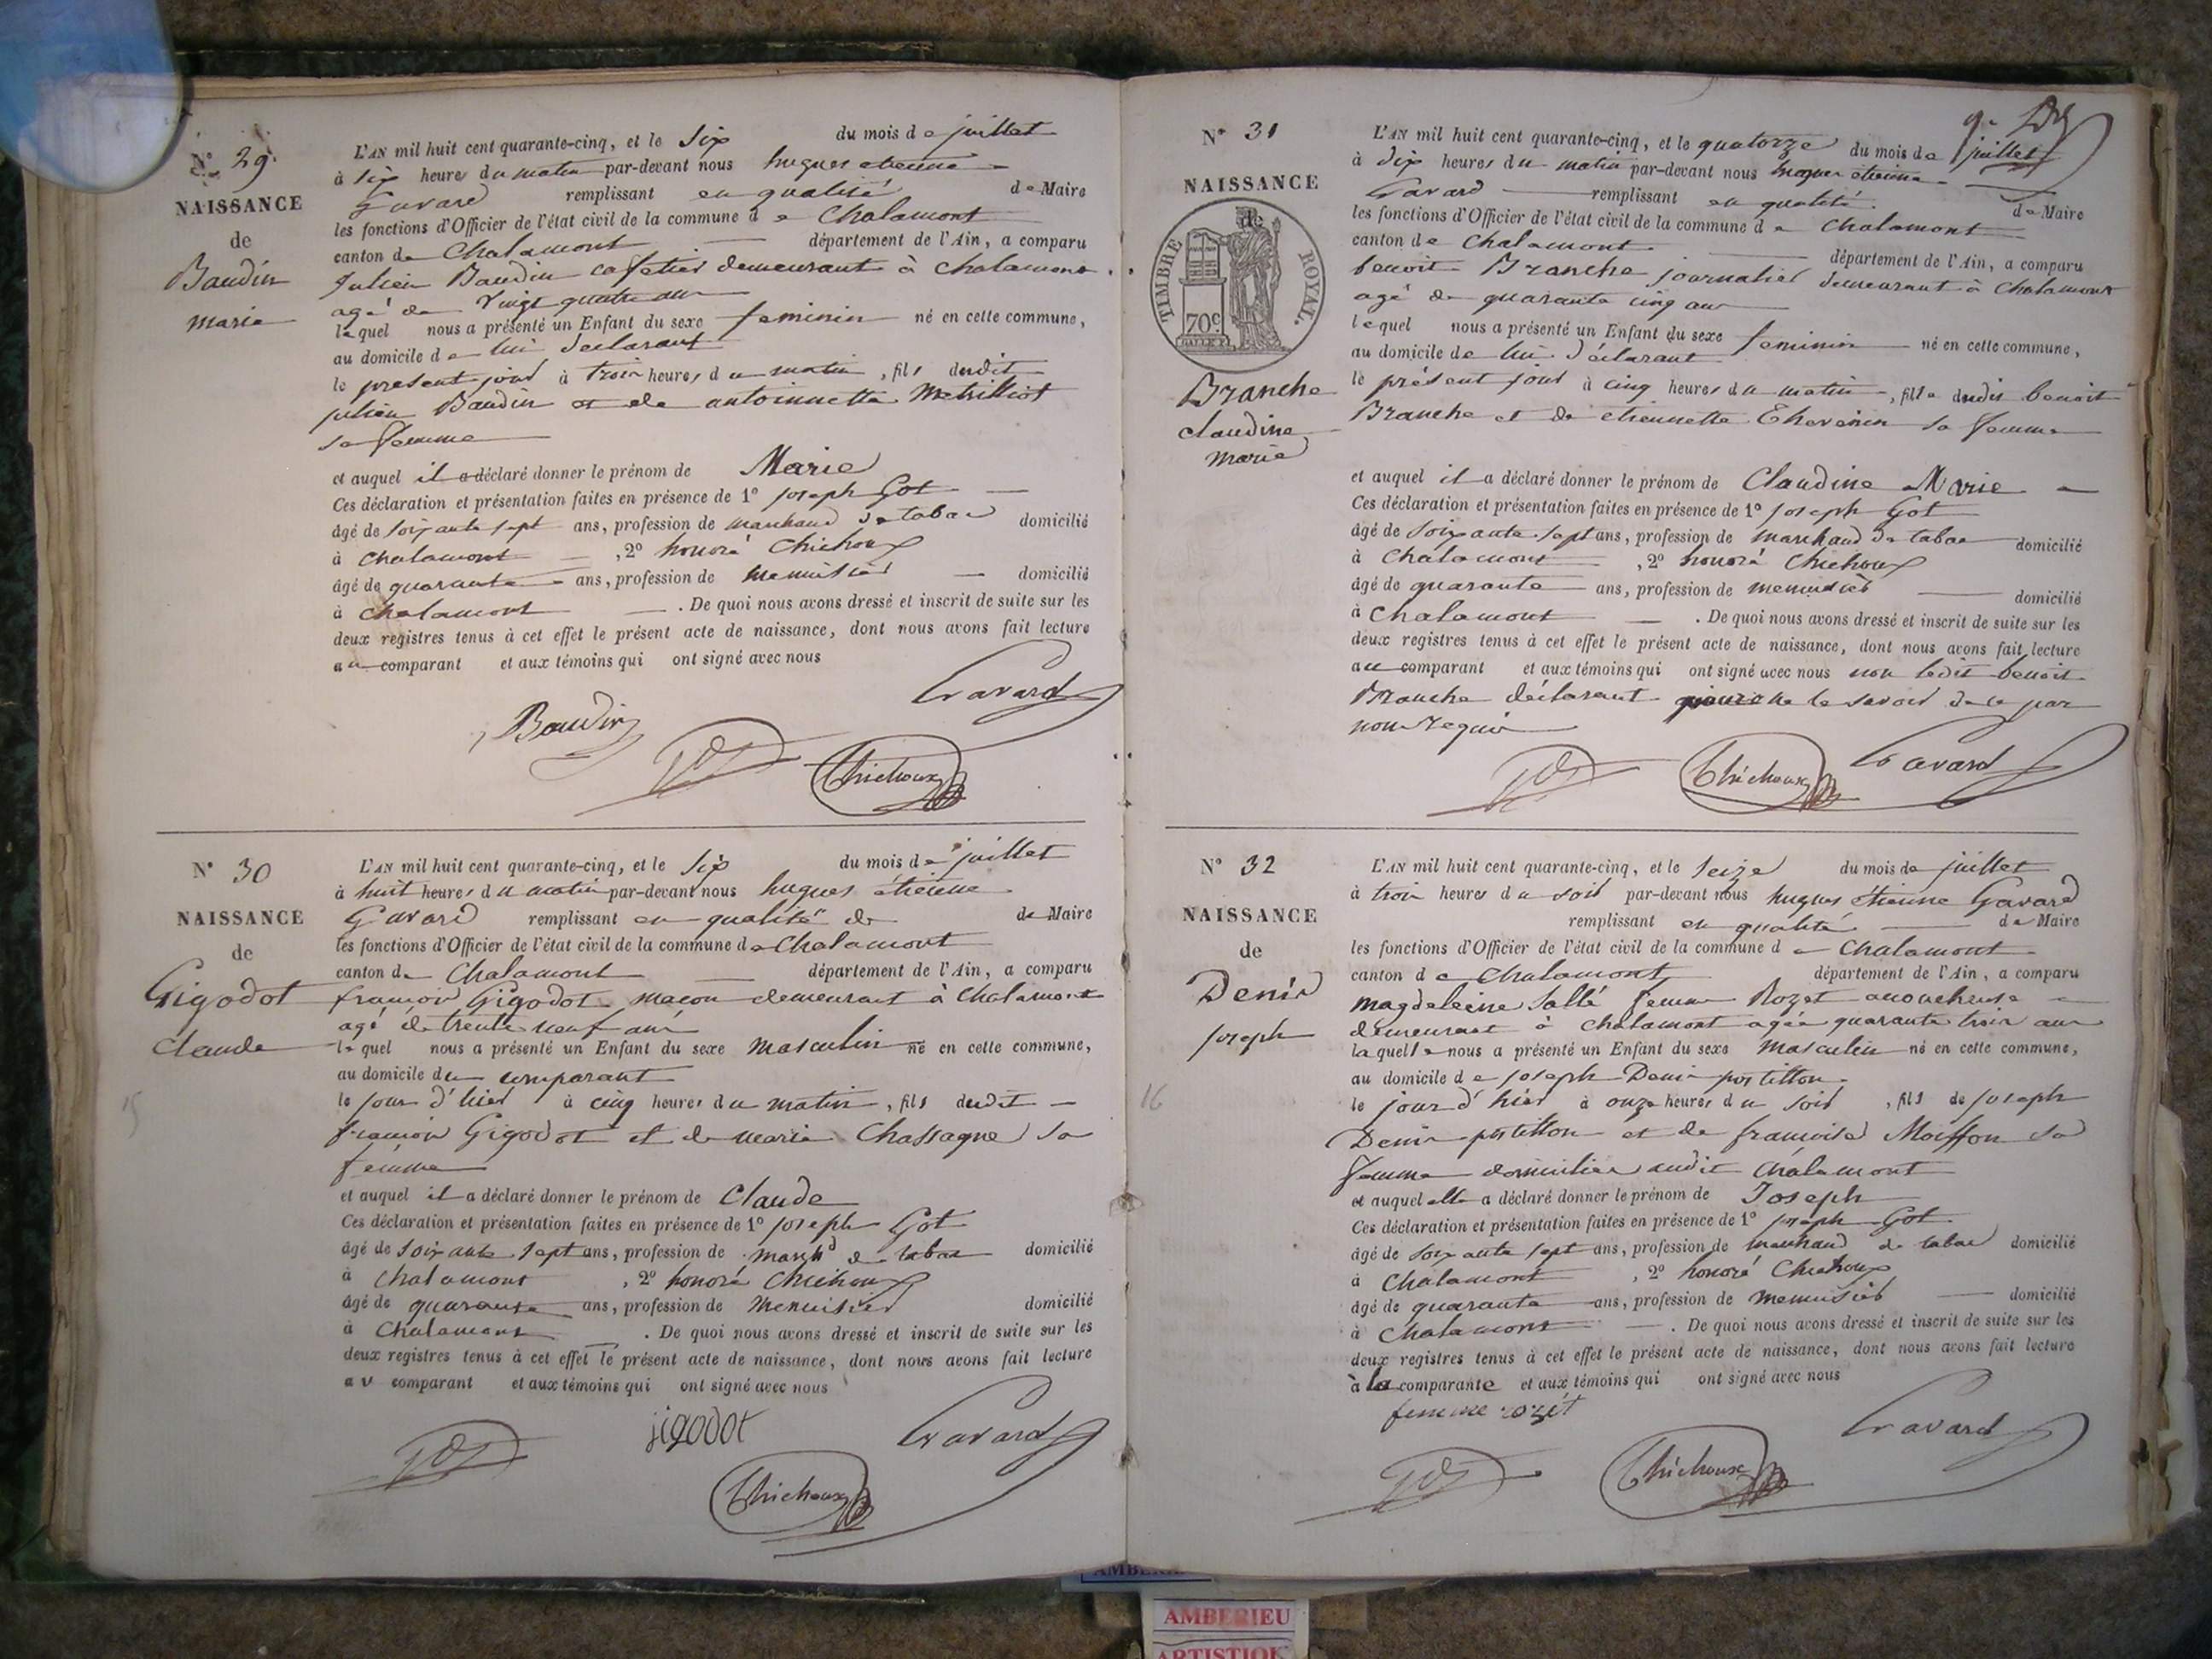 N° 29.
NAISSANCE
de
Baudin
marie
L'AN mil huit cent quarante-cinq, et le six du mois de juillet
à six heure du matin par-devant nous hugues etienne
Gavard remplissant en qualité de Maire
les fonctions d'Officier de l'état civil de la commune de Chalamont
canton de Chalamont département de l'Ain, a comparu
Julien Baudin cafetier demeurant à chalamont
agé de vingt quatre ans
lequel nous a présenté un Enfant du sexe feminin né en cette commune,
au domicile de lui declarant
le present jour à trois heures du matin, fils dudit
julien Baudin et de antoinnette
sa femme
et auquel il a déclaré donner le prénom de Marie
Ces déclaration et présentation faites en présence de 1° joseph Got
âgé de soixante sept ans, profession de marchand de tabac domicilié
à chalamont, 2° honoré Chichoux
âgé de quarante ans, profession de menuisier domicilié
à chalamont. De quoi nous avons dressé et inscrit de suite sur les
deux registres tenus à cet effet le présent acte de naissance, dont nous avons fait lecture
au comparant et aux témoins qui ont signé avec nous
Gavard
Baudin
Got
Chichoux
N° 30
NAISSANCE
de
Gigodot
claude
15
L'AN mil huit cent quarante-cinq, et le six du mois de juillet
à huit heures du matin par-devant nous hugues étienne
Gavard remplissant en qualité de de Maire
les fonctions d'Officier de l'état civil de la commune de Chalamont
canton de Chalamont département de l'Ain, a comparu
françois Gigodot maçon demeurant à Chalamont
agé de trente neuf ans
lequel nous a présenté un Enfant du sexe masculin né en cette commune,
au domicile du comparant
le jour d'hier à cinq heures du matin, fils dudit
françois Gigodot et de marie Chassagne sa
femme
et auquel il a déclaré donner le prénom de Claude
Ces déclaration et présentation faites en présence de 1° joseph Got
âgé de soixante sept ans, profession de march^d de tabac domicilié
à chalamont, 2° honoré Chichoux
âgé de quarante ans, profession de menuisier domicilié
à chalamont. De quoi nous avons dressé et inscrit de suite sur les
deux registres tenus à cet effet le présent acte de naissance, dont nous avons fait lecture
au comparant et aux témoins qui ont signé avec nous
jigodot
Gavard
Got
Chichoux
N° 31
NAISSANCE
de
TIMBRE ROYAL.
70c
Branche
claudine
marie
L'AN mil huit cent quarante-cinq, et le quatorze du mois de juillet
à dix heures du matin par-devant nous hugues étienne
Gavard remplissant en qualité de Maire
les fonctions d'Officier de l'état civil de la commune de Chalamont
canton de Chalamont département de l'Ain, a comparu
benoit Branche journalier demeurant à Chalamont
agé de quarante cinq ans
lequel nous a présenté un Enfant du sexe feminin né en cette commune,
au domicile de lui déclarant
le présent jour à cinq heures du matin, fille dudit benoit
Branche et de etiennette sa femme
et auquel il a déclaré donner le prénom de Claudine Marie
Ces déclaration et présentation faites en présence de 1° joseph Got
âgé de soixante sept ans, profession de marchand de tabac domicilié
à Chalamont, 2° honoré Chichoux
âgé de quarante ans, profession de menuisier domicilié
à Chalamont. De quoi nous avons dressé et inscrit de suite sur les
deux registres tenus à cet effet le présent acte de naissance, dont nous avons fait lecture
au comparant et aux témoins qui ont signé avec nous non ledit benoit
Branche déclarant pour ne le savoir de ce par
nous requis
Got
Chichoux
Gavard
N° 32
NAISSANCE
de
Denis
joseph
16
L'AN mil huit cent quarante-cinq, et le seize du mois de juillet
à trois heures du soir par-devant nous hugues étienne Gavard
remplissant en qualité de Maire
les fonctions d'Officier de l'état civil de la commune de Chalamont
canton de Chalamont département de l'Ain, a comparu
magdeleine Sallé femme Rozet accoucheuse
demeurant à Chalamont agée quarante trois ans
laquelle nous a présenté un Enfant du sexe masculin né en cette commune,
au domicile de joseph Denis postillon
le jour d'hier à onze heures du soir, fils de joseph
Denis postillon et de francoise Moiffon sa
femme domicilies audit Chalamont
et auquel elle a déclaré donner le prénom de Joseph
Ces déclaration et présentation faites en présence de 1° joseph Got
âgé de soixante sept ans, profession de marchand de tabac domicilié
à Chalamont, 2° honoré Chichoux
âgé de quarante ans, profession de menuisier domicilié
à Chalamont. De quoi nous avons dressé et inscrit de suite sur les
deux registres tenus à cet effet le présent acte de naissance, dont nous avons fait lecture
à la comparante et aux témoins qui ont signé avec nous
femme rozet
Gavard
Got
Chichoux
AMBERIEU
ARTISTIQ